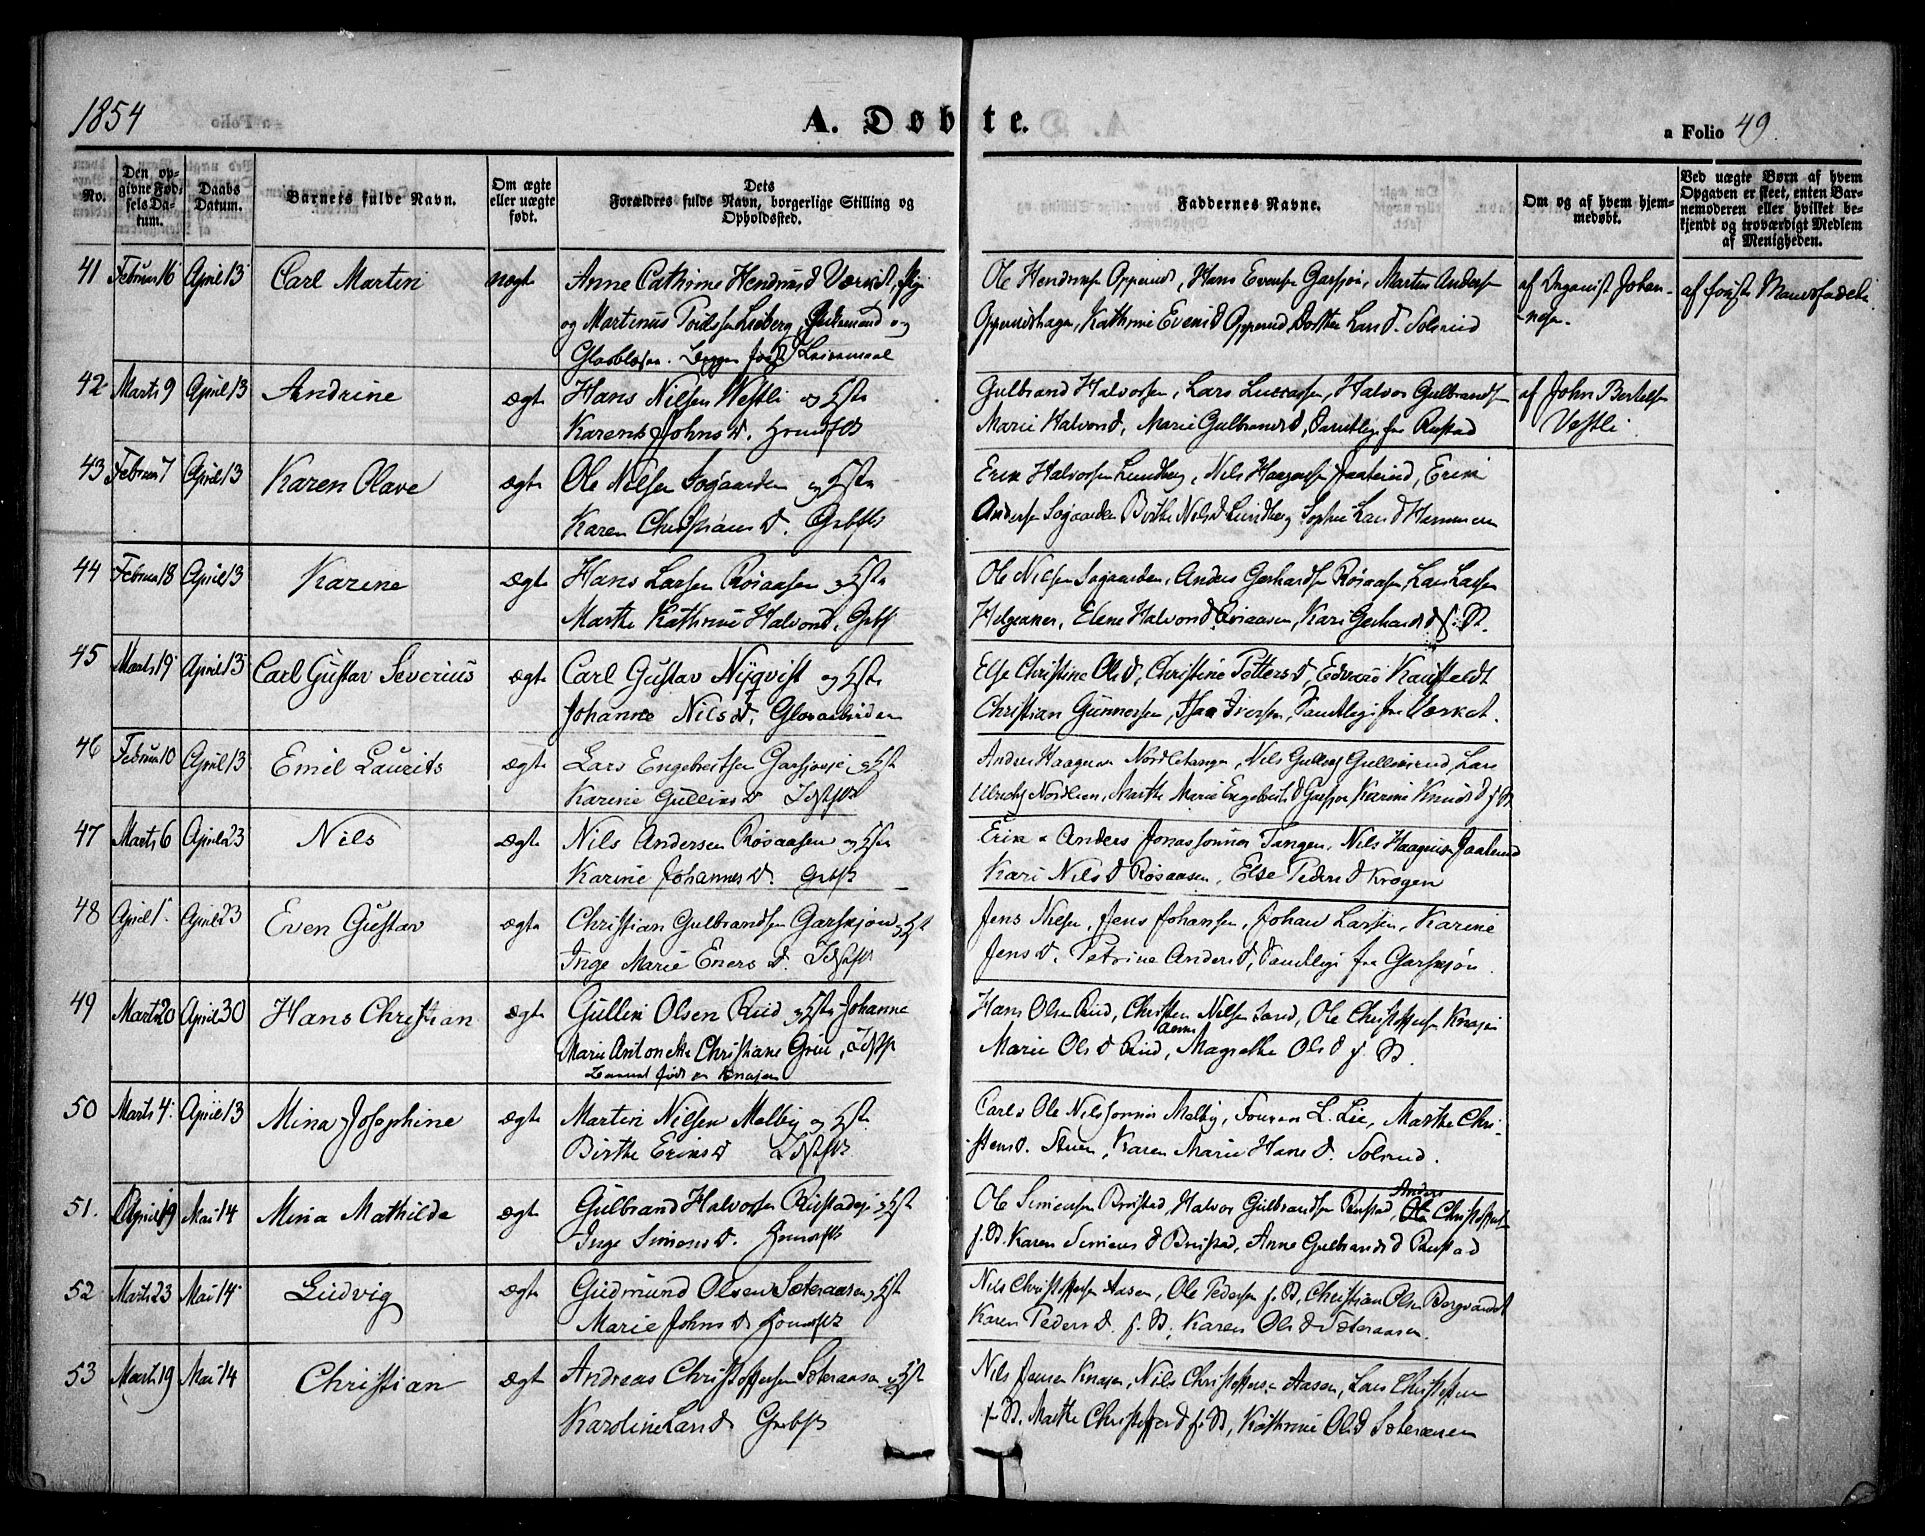 1854
A. Døbte.
a Folio 49.
No.
Den op-
givne Fød-
sels Da-
tum.
Daabs
Datum.
Barnets fulde Navn.
Om ægte
eller uægte
født.
Dets
Forældres fulde Navn, borgerlige Stilling og
Opholdssted.
Faddernes Navne.
Om og af hvem hjem-
medøbt.
Ved uægte Børn af hvem
Opgaven er skeet, enten Bar-
nemoderen eller hvilket be-
kjendt og troværdigt Medlem
af Menigheden.
41 Februar 16 April 13 Carl Martin uægte Anne Cathrine
og Martinus og
Glasblæser.
Ole Hans Evensen Garsjøe, Martin Andersen
Kathrine Evens D. Opperud Lars D. Solerud
af Organist Johan-
nesen.
af
42 Marts 9 April 13 Andrine ægte Hans Nilsen Westli og Hstr
Karen Johns D. Huusmfk
Gulbrand Halvorsen, Lars Halvor Gulbrandsen
Marie Halvors D, Marie Gulbrands D, samtlige fra Rustad
af John Bertelsen
Vestli.
43 Februar 7 April 13 Karen Olave ægte Ole Nilsen Sogaarden og Hstr
Karen Christians D. Grbfk
Erik Halvorsen Lundberg, Nils Haagensen Jaaterud, Erik
Andersen Sogaarden Birthe Nils D Lundberg Sophie Lars D
44 Februar 18 April 13 Karine ægte Hans Larsen Rosaasen og Hstr
Marthe Kathrine Halvors D. Grbf
Ole Nilsen Sogaarden, Anders Gerhardsen Rosaasen, Lars Larsen
Helgeaker, Elene Halvors D. Rosaasen, Kari Gerhards D f. St.
45 Marts 19 April 13 Carl Gustav Severius ægte Carl Gustav Nyqvist og Hstr
Johanne Nils D.
Else Christine Ols D, Christine Petters D, Edvard Kaufeldt
Christian Gunnersen, Isaa Iversen, samtlige fra Værket.
46 Februar 10 April 13 Emil Laurits ægte Lars Engebretsen Garsjøeje og Hstr
Karine Gullins D
Anders Haagensen Nordletangen, Nils Gullins. Gullinsrud, Lars
Ulrichs. Nordlien, Marthe Marie Engebrets D Garsjøe Karine Knuds D f. St
47 Marts 6 April 23 Nils ægte Nils Andersen Rosaasen og Hstr
Karine Johannes D. Grbfk
Erik & Anders Jonassønner Tangen, Nils Haagensen Jaaterud
Kari Nils D Rosaasen, Else Peders D Krogen
48 April 1. April 23 Even Gustav ægte Christian Gulbrandsen Garsjøen og Hst
Inge Marie Eners D.
Jens Nilsen, Jens Johansen, Johan Larsen, Karine
Jens D. Petrine Anders D, samtlige fra Garsjøn.
49 Marts 20 April 30 Hans Christian ægte Gullin Olsen Rud og Hstr Johanne
Marie Antonette Christiane
Barnet født paa Knajen
Hans Olsen Rud, Christen Nilsen Ole Christophersen Knajen
Anne
Marie Ols D Rud, Magrethe Ols D f. St.
50 Marts 4. April 13 Mina Josephine ægte Martin Nilsen Melby og Hstr
Birthe Eriks D
Carl & Ole Nilssønner Melby, L. Lie, Marthe Chri-
stens D. Stuen, Karen Marie Hans D. Solerud.
51. April 19 Mai 14 Mina Mathilde ægte Gulbrand Halvorsen Rustadeje og Hstr
Inge Simens D. Huusmfk
Anders
Ole Simensen Brustad, Halvor Gulbrandsen Rustad, Ole Christophersen
f. St. Karen Simens D Brustad, Anne Gulbrands D Rustad
52 Marts 23 Mai 14. Ludvig ægte Gudmund Olsen Sæteraasen og Hstr
Marie Johns D. Huusmfk
Nils Christophersen Aasen, Ole Pedersen f. St, Christian Olsen
Karen Peders D. f. St, Karen Ols D Sæteraasen.
53 Marts 19 Mai 14 Christian ægte Andreas Christophersen Sæteraasen og Hstr
Karoline Lars D. Grubfk
Nils Jensen Knajen, Nils Christophersen Aasen, Lars Christophersen
f. St, Marthe Christophers D f. St, Kathrine Ols D Sæteraasen